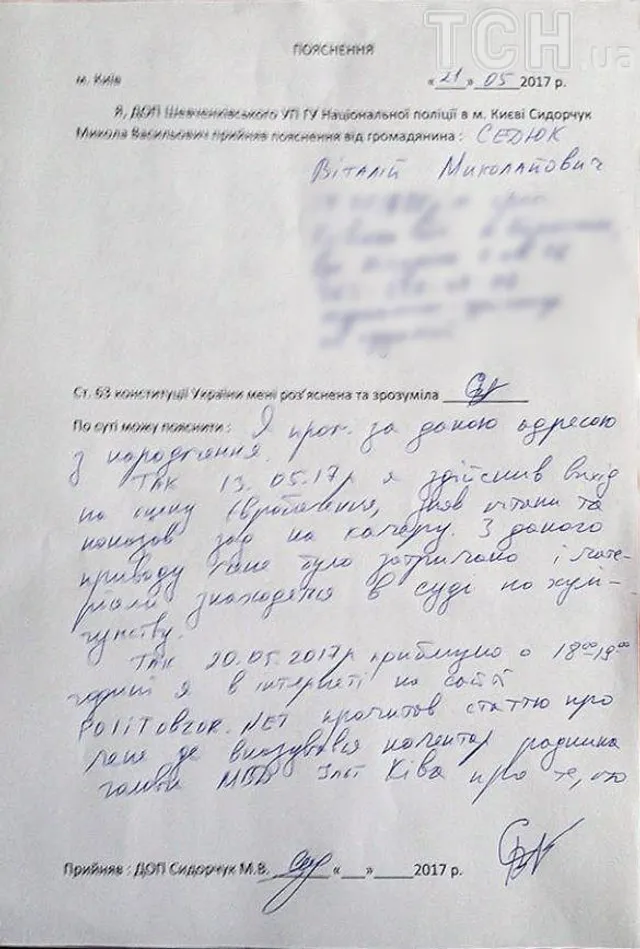 ТСН.ua
ПОЯСНЕННЯ
м. Київ « 21 » 05 2017 р.
Я, ДОП Шевченківського УП ГУ Національної поліції в м. Києві Сидорчук
Микола Васильович прийняв пояснення від громадянина : СЕДЮК
Віталій Миколайович
Ст. 63 конституції України мені роз'яснена та зрозуміла
По суті можу пояснити : Я прож. за даною адресою
з народження.
Так 13.05.17р я здійснив вихід
на сцену Євробачення, зняв штани та
показав зад на камеру. З даного
приводу мене було затримано і мате-
ріали знаходяться в суді по хулі-
ганству.
Так 20.05.2017р приблизно о 18⁰⁰-19⁰⁰
годині я в інтернеті на сайті
POLITOBZOR.NET прочитав статтю про
мене де вказувався коментар радника
голови МВД Іллі Ківа про те, що
Прийняв : ДОП Сидорчук М.В. « » 2017 р.